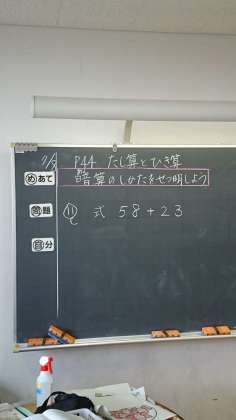 P44 たし算とひき算
めあて 暗算のしかたをせつ明しよう
問題 ⑪ 式 58+23
自分